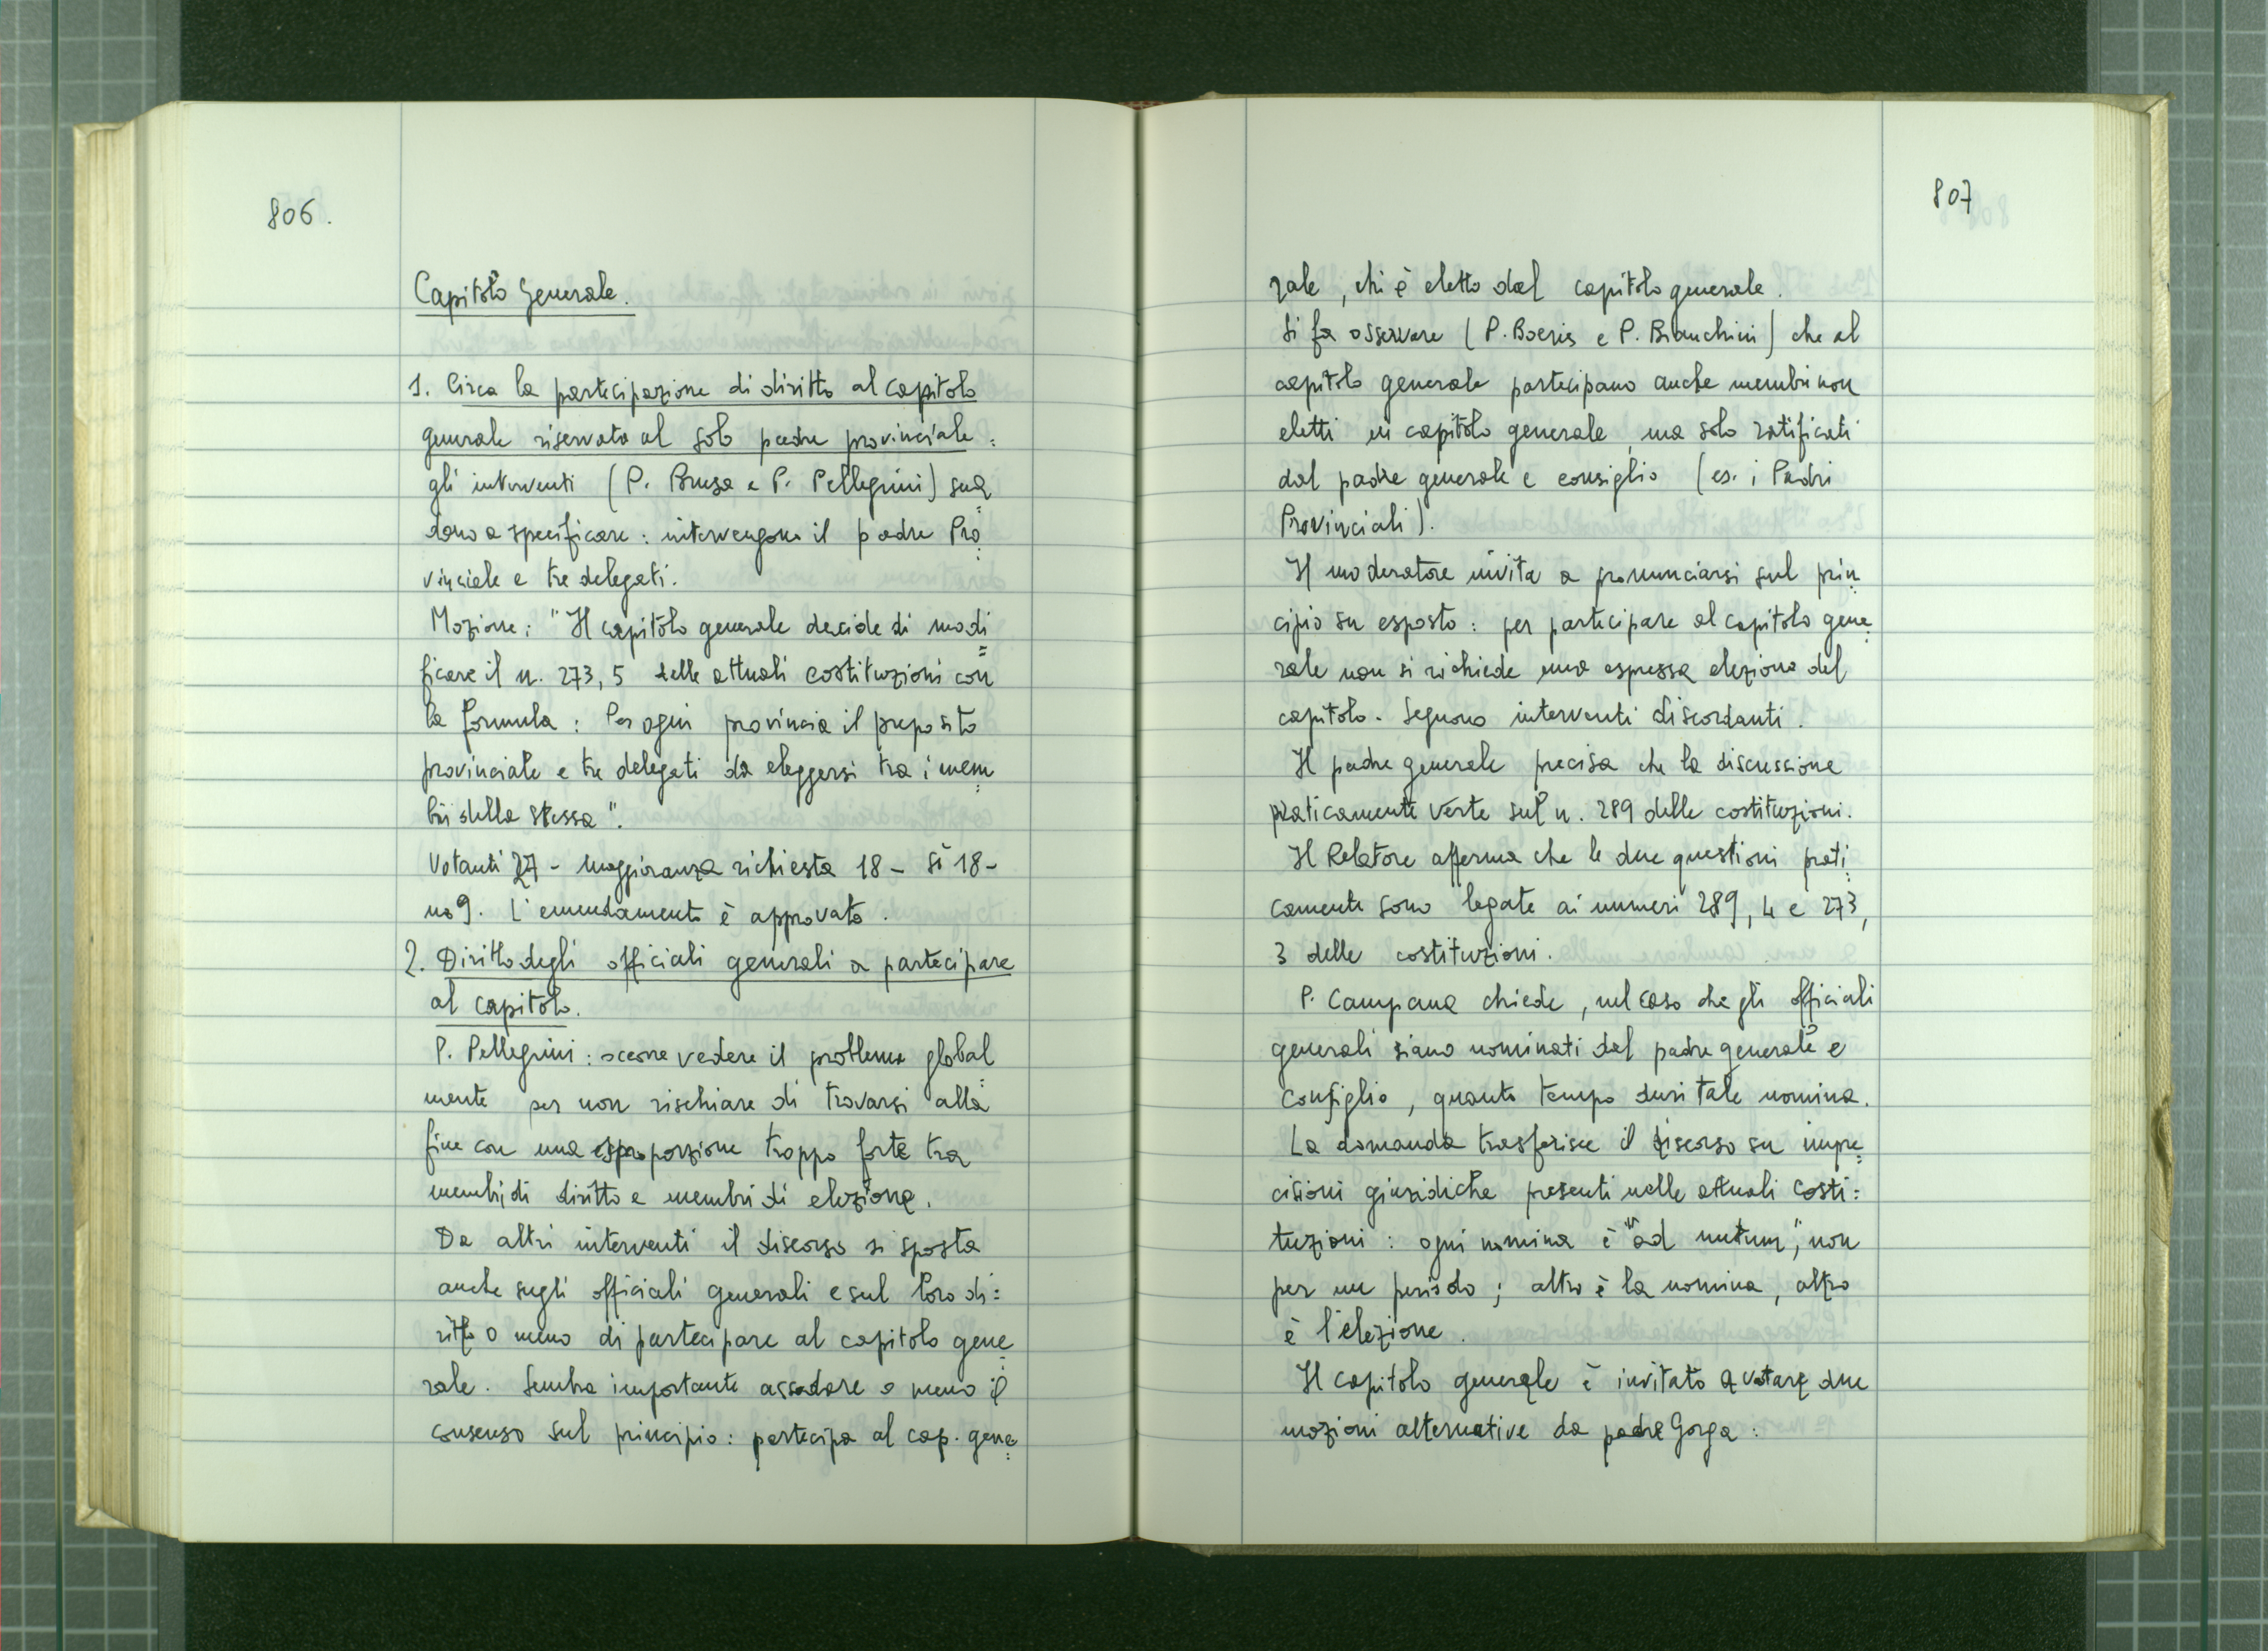 806.
Capitolo Generale.
1. Circa la partecipazione di diritto al capitolo
generale riservata al solo padre provinciale:
gli interventi (P. Brusa e P. Pellegrini) sua=
dono a specificare: intervengono il padre Pro=
vinciale e tre delegati.
Mozione: "Il capitolo generale decide di modi=
ficare il n. 273, 5 delle attuali costituzioni con
la formula: Per ogni provincia il preposito
provinciale e tre delegati da eleggersi tra i mem=
bri della stessa".
Votanti 27 - maggioranza richiesta 18 - sì 18 -
no 9. L'emendamento è approvato.
2. Diritto degli officiali generali a partecipare
al capitolo.
P. Pellegrini: occorre vedere il problema global=
mente per non rischiare di trovarsi alla
fine con una sproporzione troppo forte tra
membri di diritto e membri di elezione.
Da altri interventi il discorso si sposta
anche sugli officiali generali e sul loro di=
ritto o meno di partecipare al capitolo gene=
rale. Sembra importante assodare o meno il
consenso sul principio: partecipa al cap. gene=
807
rale, chi è eletto dal capitolo generale.
Si fa osservare (P. Boeris e P. Bianchini) che al
capitolo generale partecipano anche membri non
eletti in capitolo generale, ma solo ratificati
dal padre generale e consiglio (es. i Padri
Provinciali).
Il moderatore invita a pronunciarsi sul prin=
cipio su esposto: per partecipare al capitolo gene=
rale non si richiede una espressa elezione del
capitolo. Seguono interventi discordanti.
Il padre generale precisa che la discussione
praticamente verte sul n. 289 delle costituzioni.
Il Relatore afferma che le due questioni prati=
camente sono legate ai numeri 289, 4 e 273,
3 delle costituzioni.
P. Campana chiede, nel caso che gli officiali
generali siano nominati dal padre generale e
Consiglio, quanto tempo duri tale nomina.
La domanda trasferisce il discorso su impre=
cisioni giuridiche presenti nelle attuali Costi=
tuzioni: ogni nomina è "ad nutum", non
per un periodo; altro è la nomina, altro
è l'elezione.
Il capitolo generale è invitato a votare due
mozioni alternative da padre Gorga: